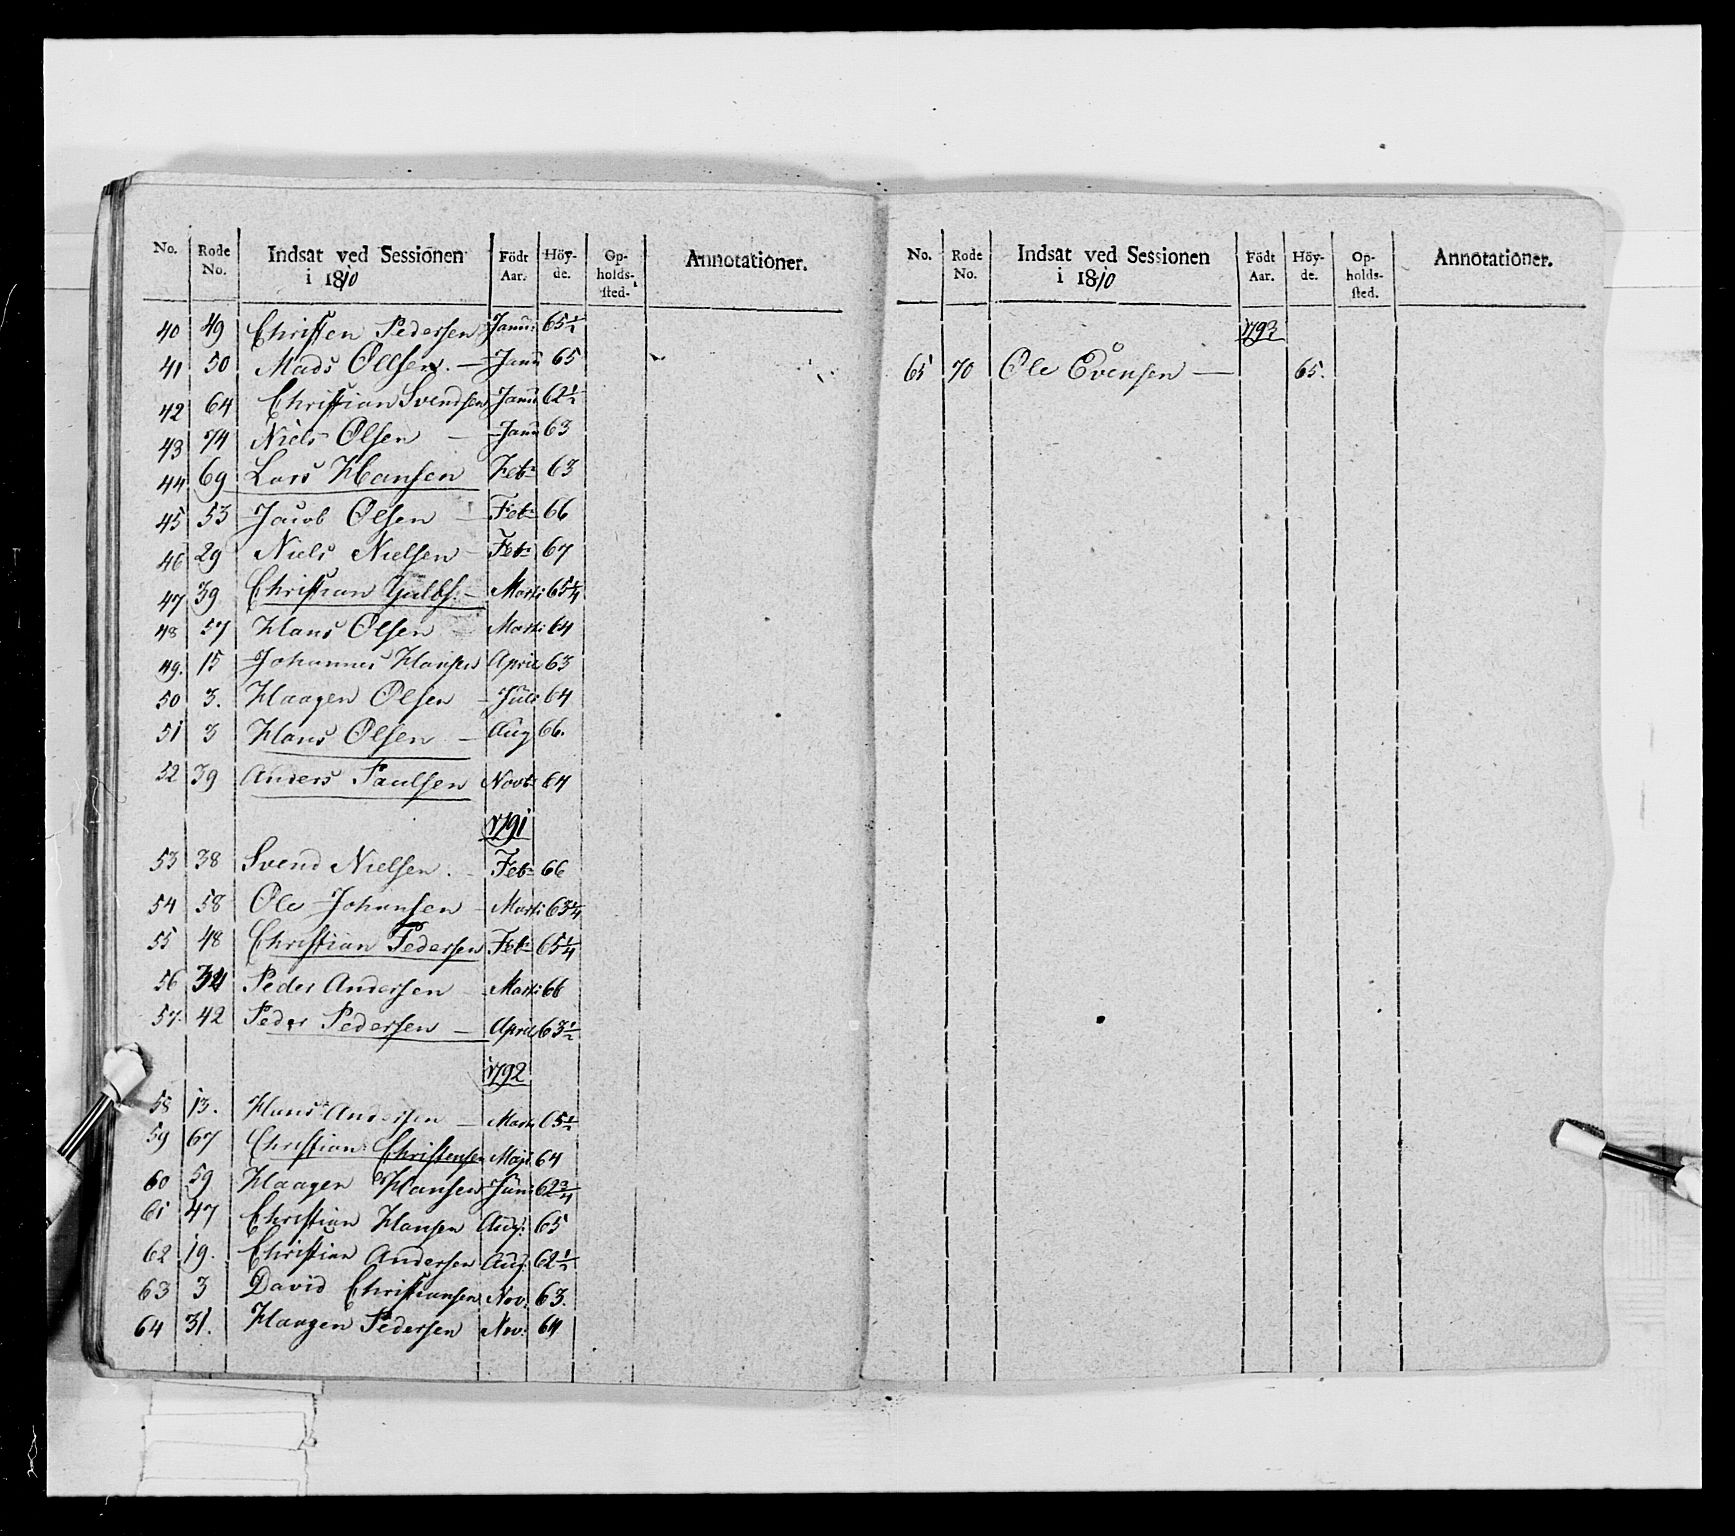 No. Rode No. Indsat ved Sessionen i 1810 Födt Aar. Höy-de. Op-holds-sted. Annotationer.
40 49 Christen Pedersen Janu: 65½
41 50 Mads Ollsen. — Janu 65
42 64 Christian Svendsen Janu 62½
43 74 Niels Olsen — Janu 63
44 69 Lars Hansen Feb: 63
45 53 Jacob Olsen — Feb: 66
46 29 Niels Nielsen — Feb: 67
47 39 Christian — Marti 65¼
48 57 Hans Olsen Marti 64
49. 15 Johannes Hansen April 63
50 3. Haagen Olsen — Juli 64
51 3 Hans Olsen — Aug 66.
52 39 Anders Paulsen Novb: 64
1791
53 38 Svend Nielsen. — Feb: 66
54 58 Ole Johansen — Marti 63¼
55 48 Christian Pedersen Feb: 65¼
56 34 Peder Andersen — Marti 66
57. 42 Peder Pedersen — April 63½
1792
58 13. Hans Andersen — Marti 65½
59 67 Christian Christensen Maji 64
60 59 Haagen Hansen Juni 62¾
61 47 Christian Hansen Aug: 65
62 19. Christian Andersen Aug: 62½
63 3 David Christiansen Nov: 63.
64 31. Haagen Pedersen Nov: 64
No. Rode No. Indsat ved Sessionen i 1810 Födt Aar. Höy-de. Op-holds-sted. Annotationer.
1793
65 70 Ole Evensen — 65.